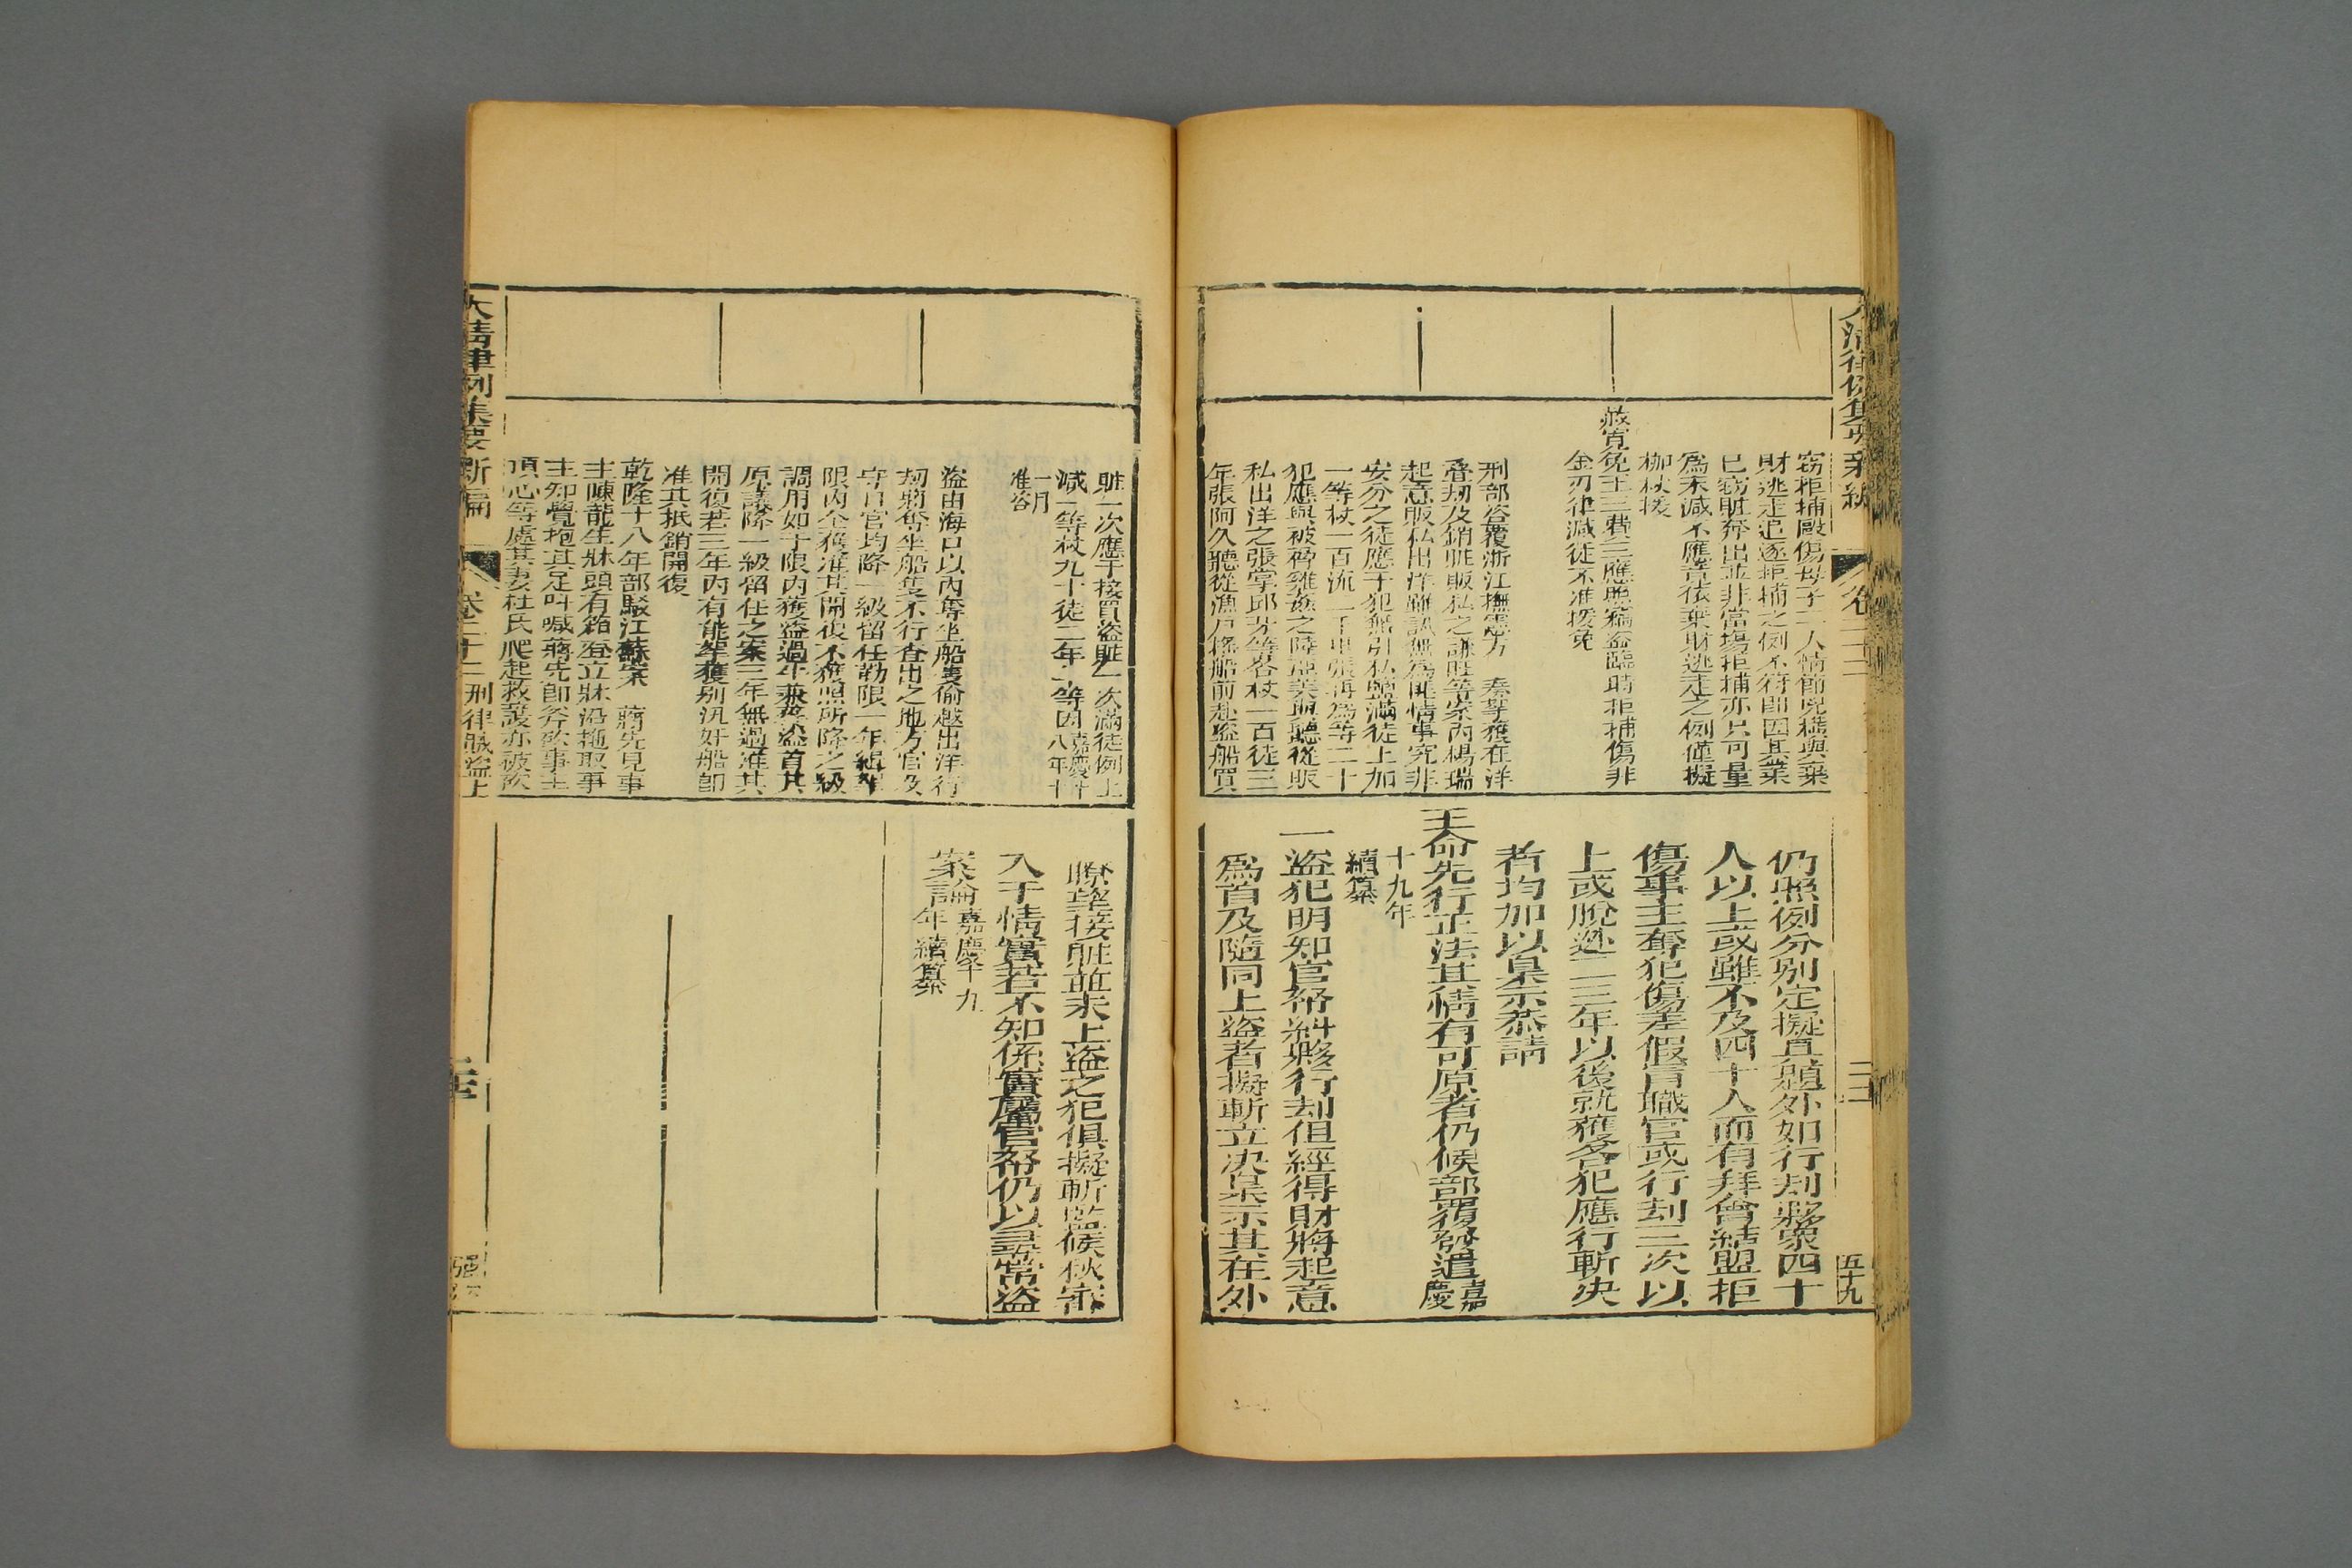 大清律例集要新編
卷二十三
五十九
竊拒捕毆傷母子二人情節兇橫與棄
財逃走追逐拒捕之例不符即因其棄
已竊賍奔出並非當場拒捕亦只可量
為末減不應竟依棄財逃走之例僅擬
枷杖援
赦寬免王三費三應照竊盜臨時拒捕傷非
金刃律減徒不准援免
刑部咨覆浙江撫憲方 奏拏獲在洋
叠刼及銷賍販私之謙旺等案內楊瑞
起意販私出洋雖訊無為匪情事究非
安分之徒應于犯無引私鹽滿徒上加
一等杖一百流二千里張再為等二十
犯應與被脅雞姦之陸亞美與聽從販
私出洋之張掌邱芬等各杖一百徒三
年張阿久聽從漁戶搖船前赴盜船買
仍照例分別定擬直隸外如行刼夥衆四十
人以上或雖不及四十人而有拜會結盟拒
傷事主奪犯傷差假冒職官或行刼三次以
上或脫逃二三年以後就獲各犯應行斬決
者均加以梟示恭請
王命先行正法其情有可原者仍候部覆發遣嘉慶
十九年
續纂
一盜犯明知官帑糾夥行刼但經得財將起意
為首及隨同上盜者擬斬立決梟示其在外
賍一次應于接買盜賍一次滿徒例上
減一等杖九十徒二年半等因嘉慶十八年十
一月
准咨
盜由海口以內奪坐船隻偷越出洋行
刼將奪坐船隻不行查出之地方官及
守口官均降一級留任勒限一年緝拏
限內全獲准其開復不獲照所降之級
調用如于限內獲盜過半兼獲盜首其
原議降一級留任之案三年無過准其
開復若三年內有能拏獲別汛奸船即
准其抵銷開復
乾隆十八年部駁江蘇案 蔣先見事
主陳龍生牀頭有箱登立牀沿拖取事
主知覺抱其足叫喊蔣先即斧砍事主
頂心等處其妻杜氏爬起救護亦被砍
瞭望接賍並未上盜之犯俱擬斬監候秋審
入于情實若不知係實屬官帑仍以尋常盜
案論嘉慶十九
年續纂
大清律例集要新編
卷二十三 刑律賊盜上